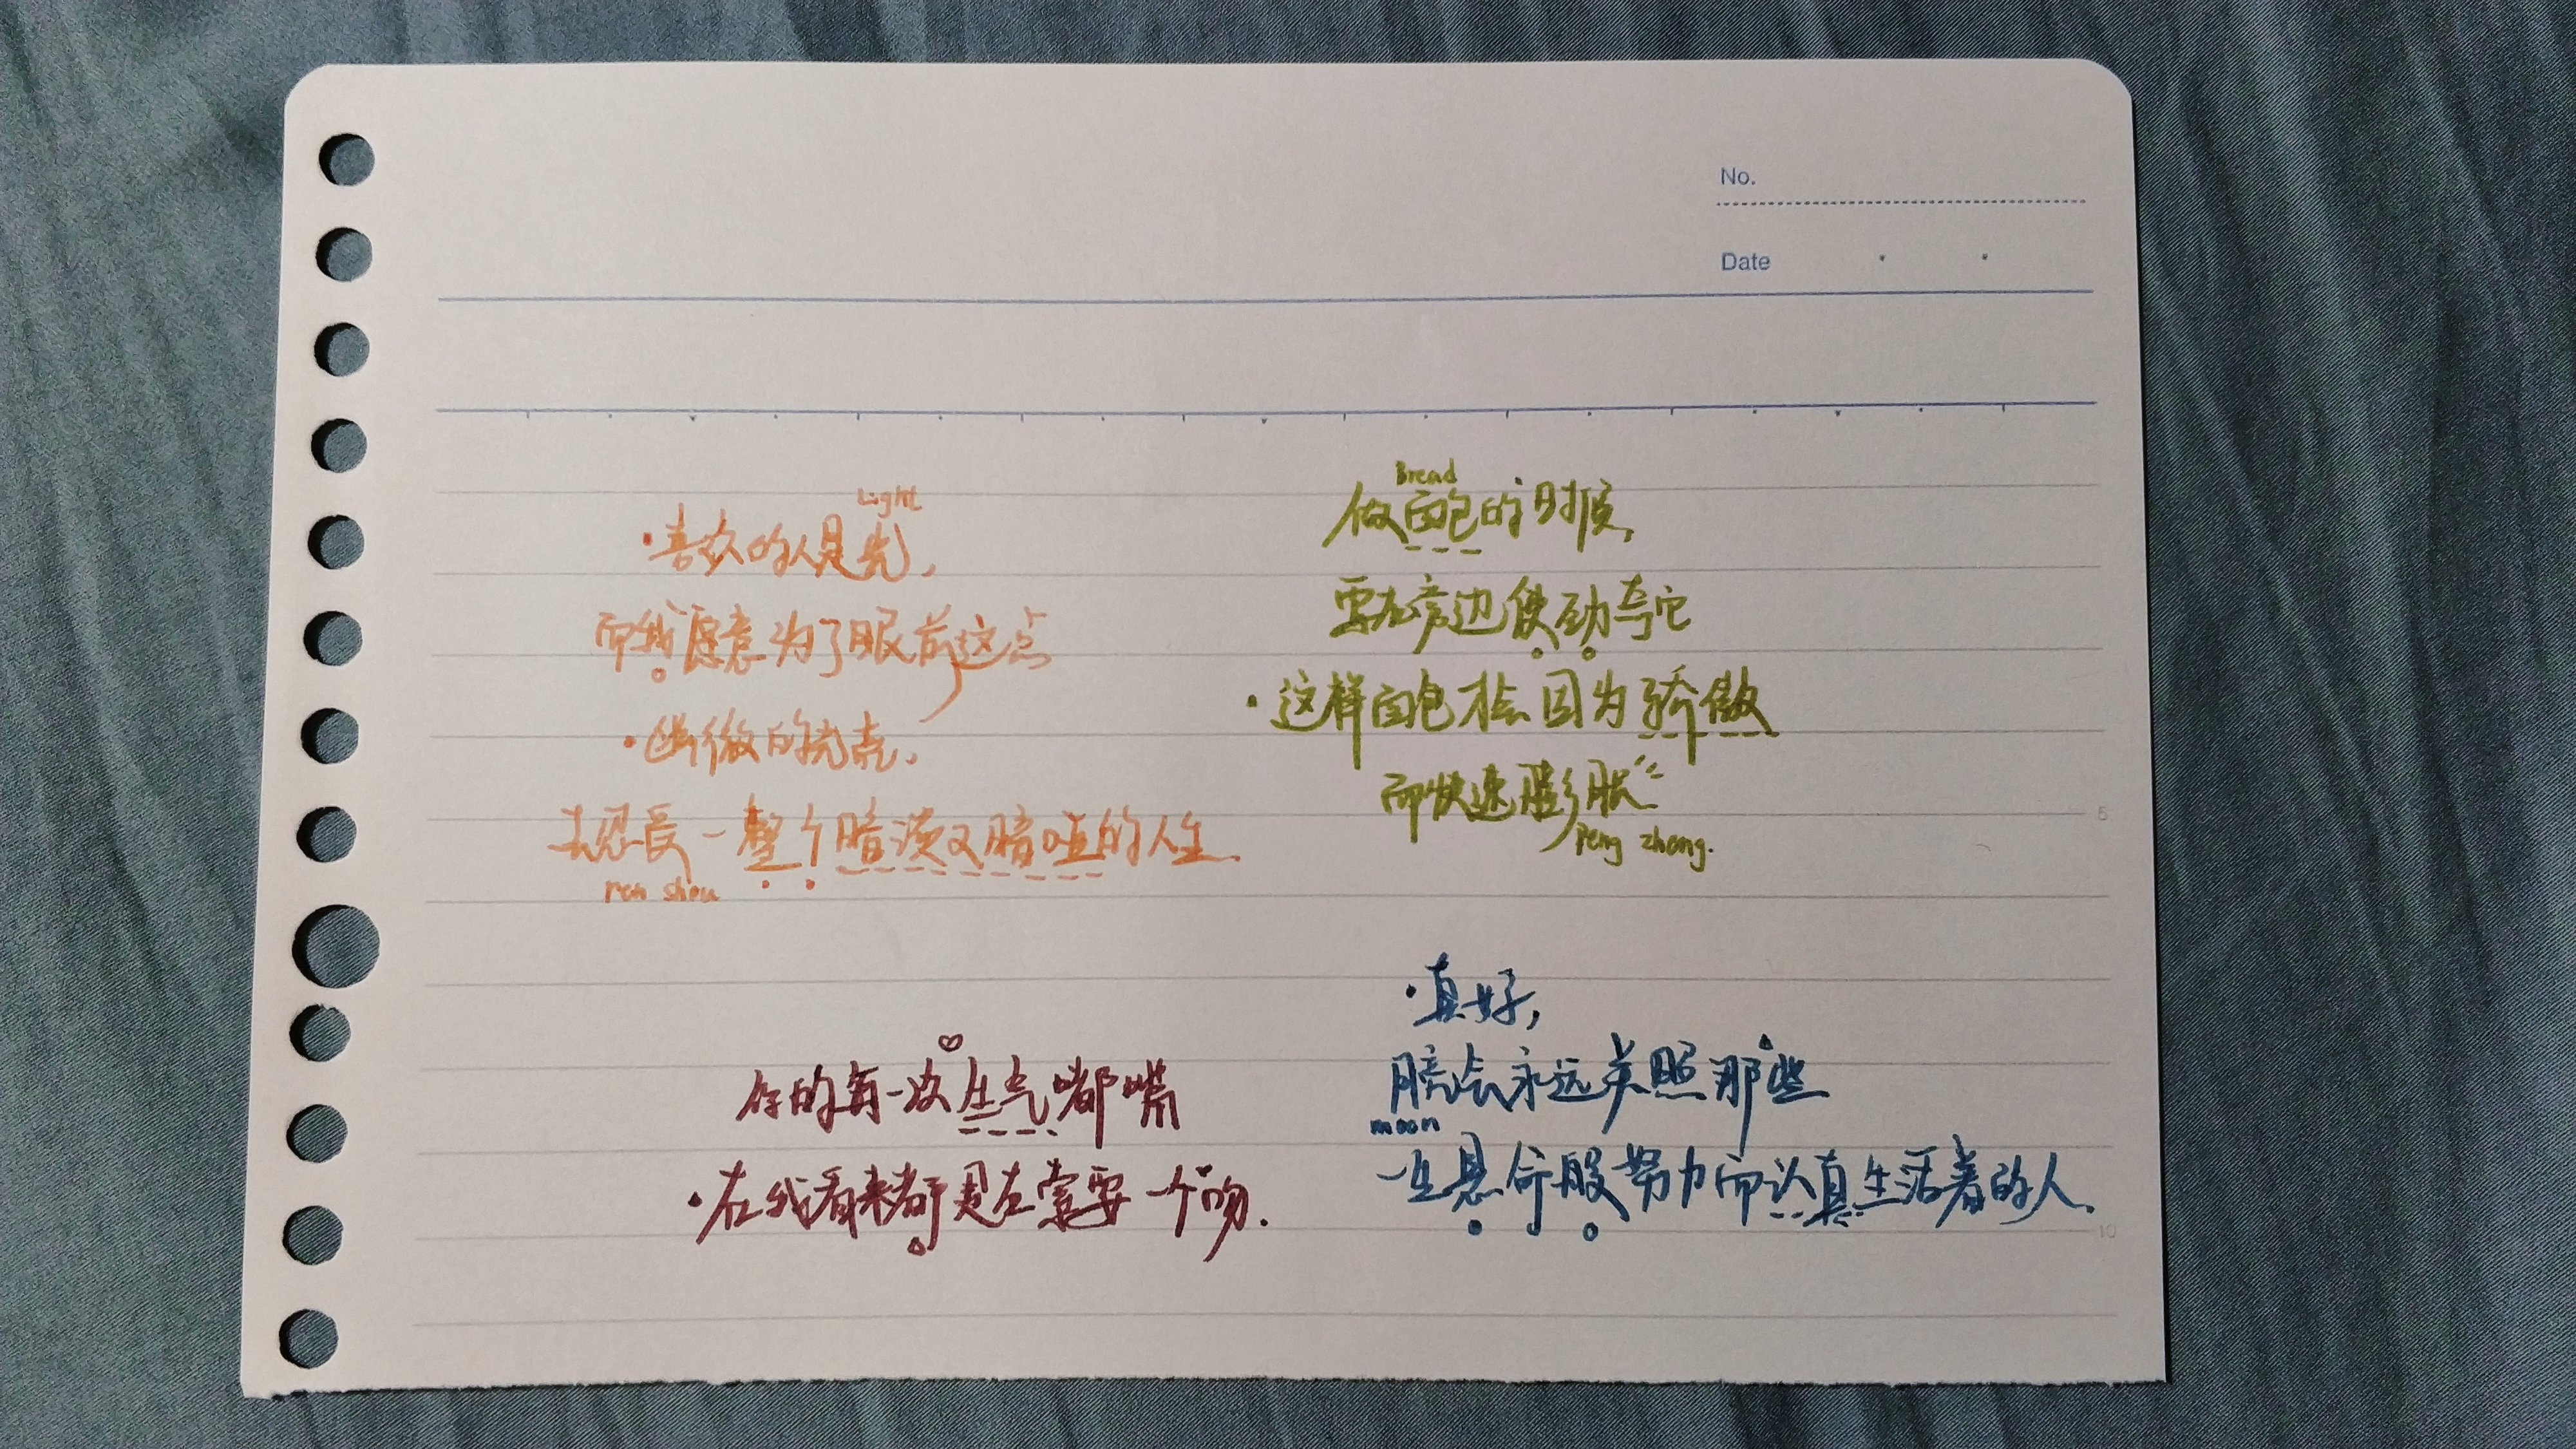 No.
Date
Light
喜欢的人是光,
而我愿意为了眼前这点
幽微的光亮,
去忍受一整个暗淡又暗哑的人生.
ren shou
Bread
做面包的时候,
要在旁边使劲夸它
这样面包才会因为骄傲
而快速膨胀
Peng zhang.
5
你的每一次生气嘟嘴
在我看来都是在索要一个吻.
真好,
月亮会永远关照那些
moon
一生悬命般努力而认真生活着的人.
10